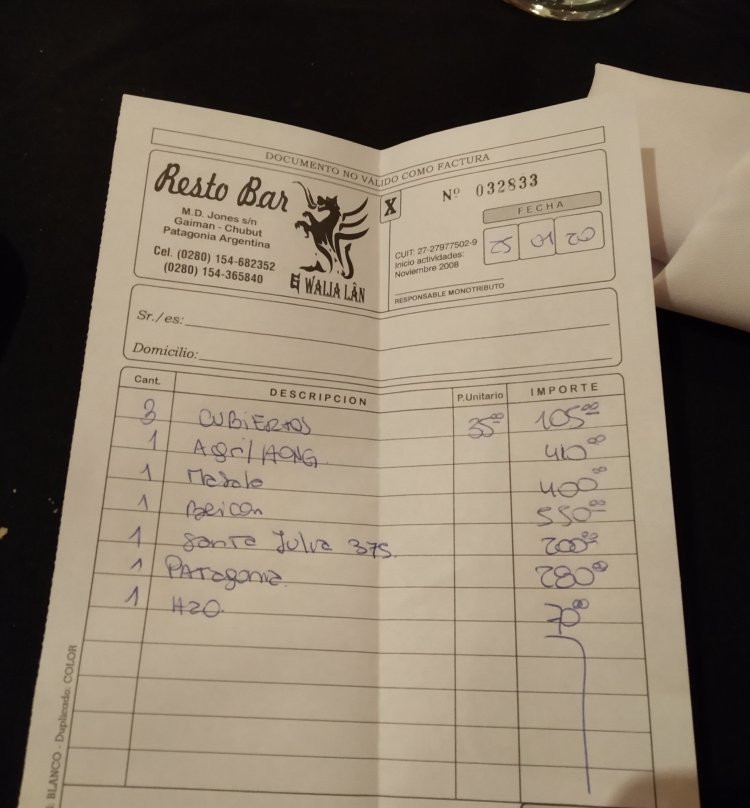 DOCUMENTO NO VÁLIDO COMO FACTURA
Resto Bar
M.D. Jones s/n
Gaiman - Chubut
Patagonia Argentina
Cel. (0280) 154-682352
(0280) 154-365840
GWALIA LÂN
X
Nº 032833
FECHA
25 01 20
CUIT: 27-27977502-9
Inicio actividades:
Noviembre 2008
RESPONSABLE MONOTRIBUTO
Sr./es:
Domicilio:
Cant. DESCRIPCION P.Unitario IMPORTE
3 CUBIERTOS 35.00 105.00
1 410.00
1 400.00
1 550.00
1 Santa Julia 375. 200.00
1 PATagonia 280.00
1 H2O. 70.00
BLANCO - Duplicado: COLOR